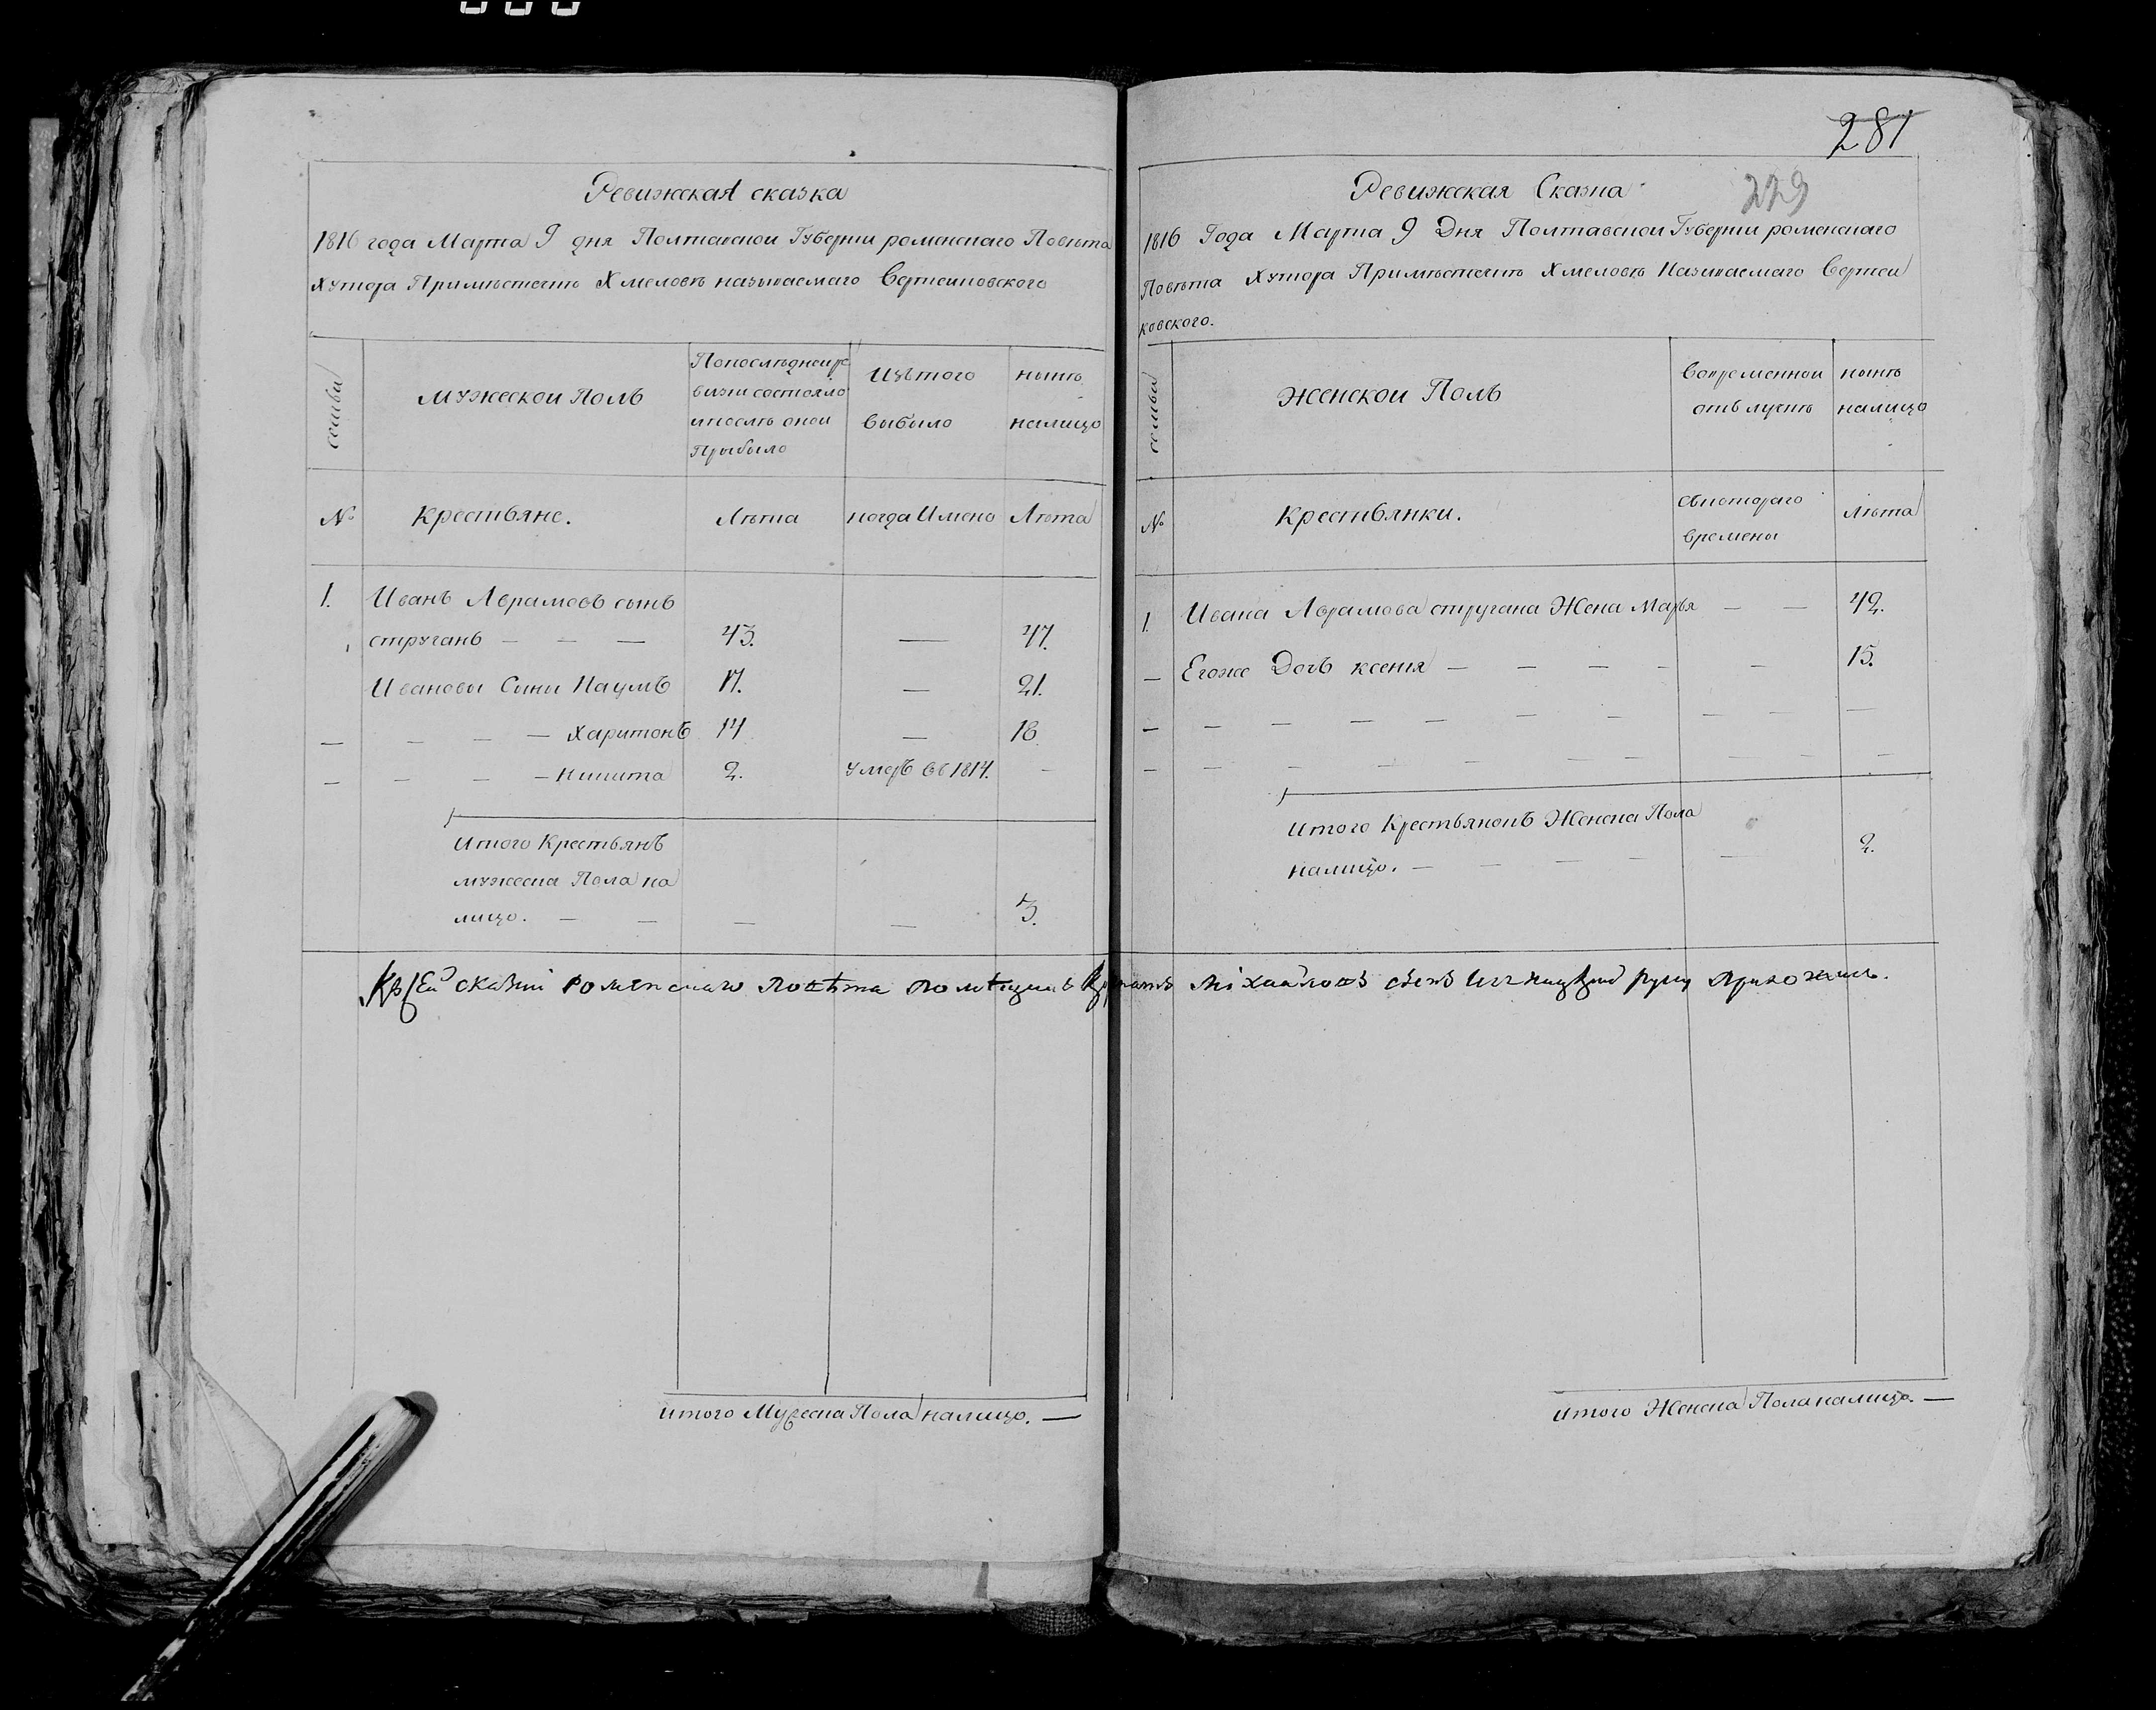 281
229
Ревижская сказка
1816 года Марта 9 дня Полтавской Губернии роменскаго Повѣта
хутора Примѣстечкѣ Хмеловкѣ называемаго
семьи
мужеской Полъ
Попослѣдней ре
визіи состояло
ипослѣ оной
Прибыло
Изътого
выбыло
нынѣ
налицо
№
Крестьяне.
Лѣта
когда Имено
Лѣта
1. Иванъ Аврамовъ сынъ
стругань — — — 43. — 47.
Ивановы Сыны Наумъ 17. — 21.
— — — — Харитонъ 14 — 18
— — — — Никита 2. умеръ въ 1814. —
Итого Крестьянъ
мужеска Пола на
лицо. — — — — 3.
Ревижская Сказка
1816 Года Марта 9 Дня Полтавской Губернии роменскаго
Повѣта Хутора Примѣстечкѣ Хмеловкѣ Называемаго
ковского.
семьи
женской Полъ
Вовременной
отълучкѣ
нынѣ
налицо
№
Крестьянки.
Съкотораго
времены
лѣта
1. Ивана Аврамова стругана Жена Марья — — 42.
— Егоже Дочь ксенія — — — — — 15.
Итого Крестьянокъ Женска Пола
налицо. — — — — — 2.
Къ сей сказкі роменскаго повѣта помѣщикъ Міхайловъ сынъ руку приложилъ.
итого Мужеска Пола налицо. —
итого Женска Пола налицо. —